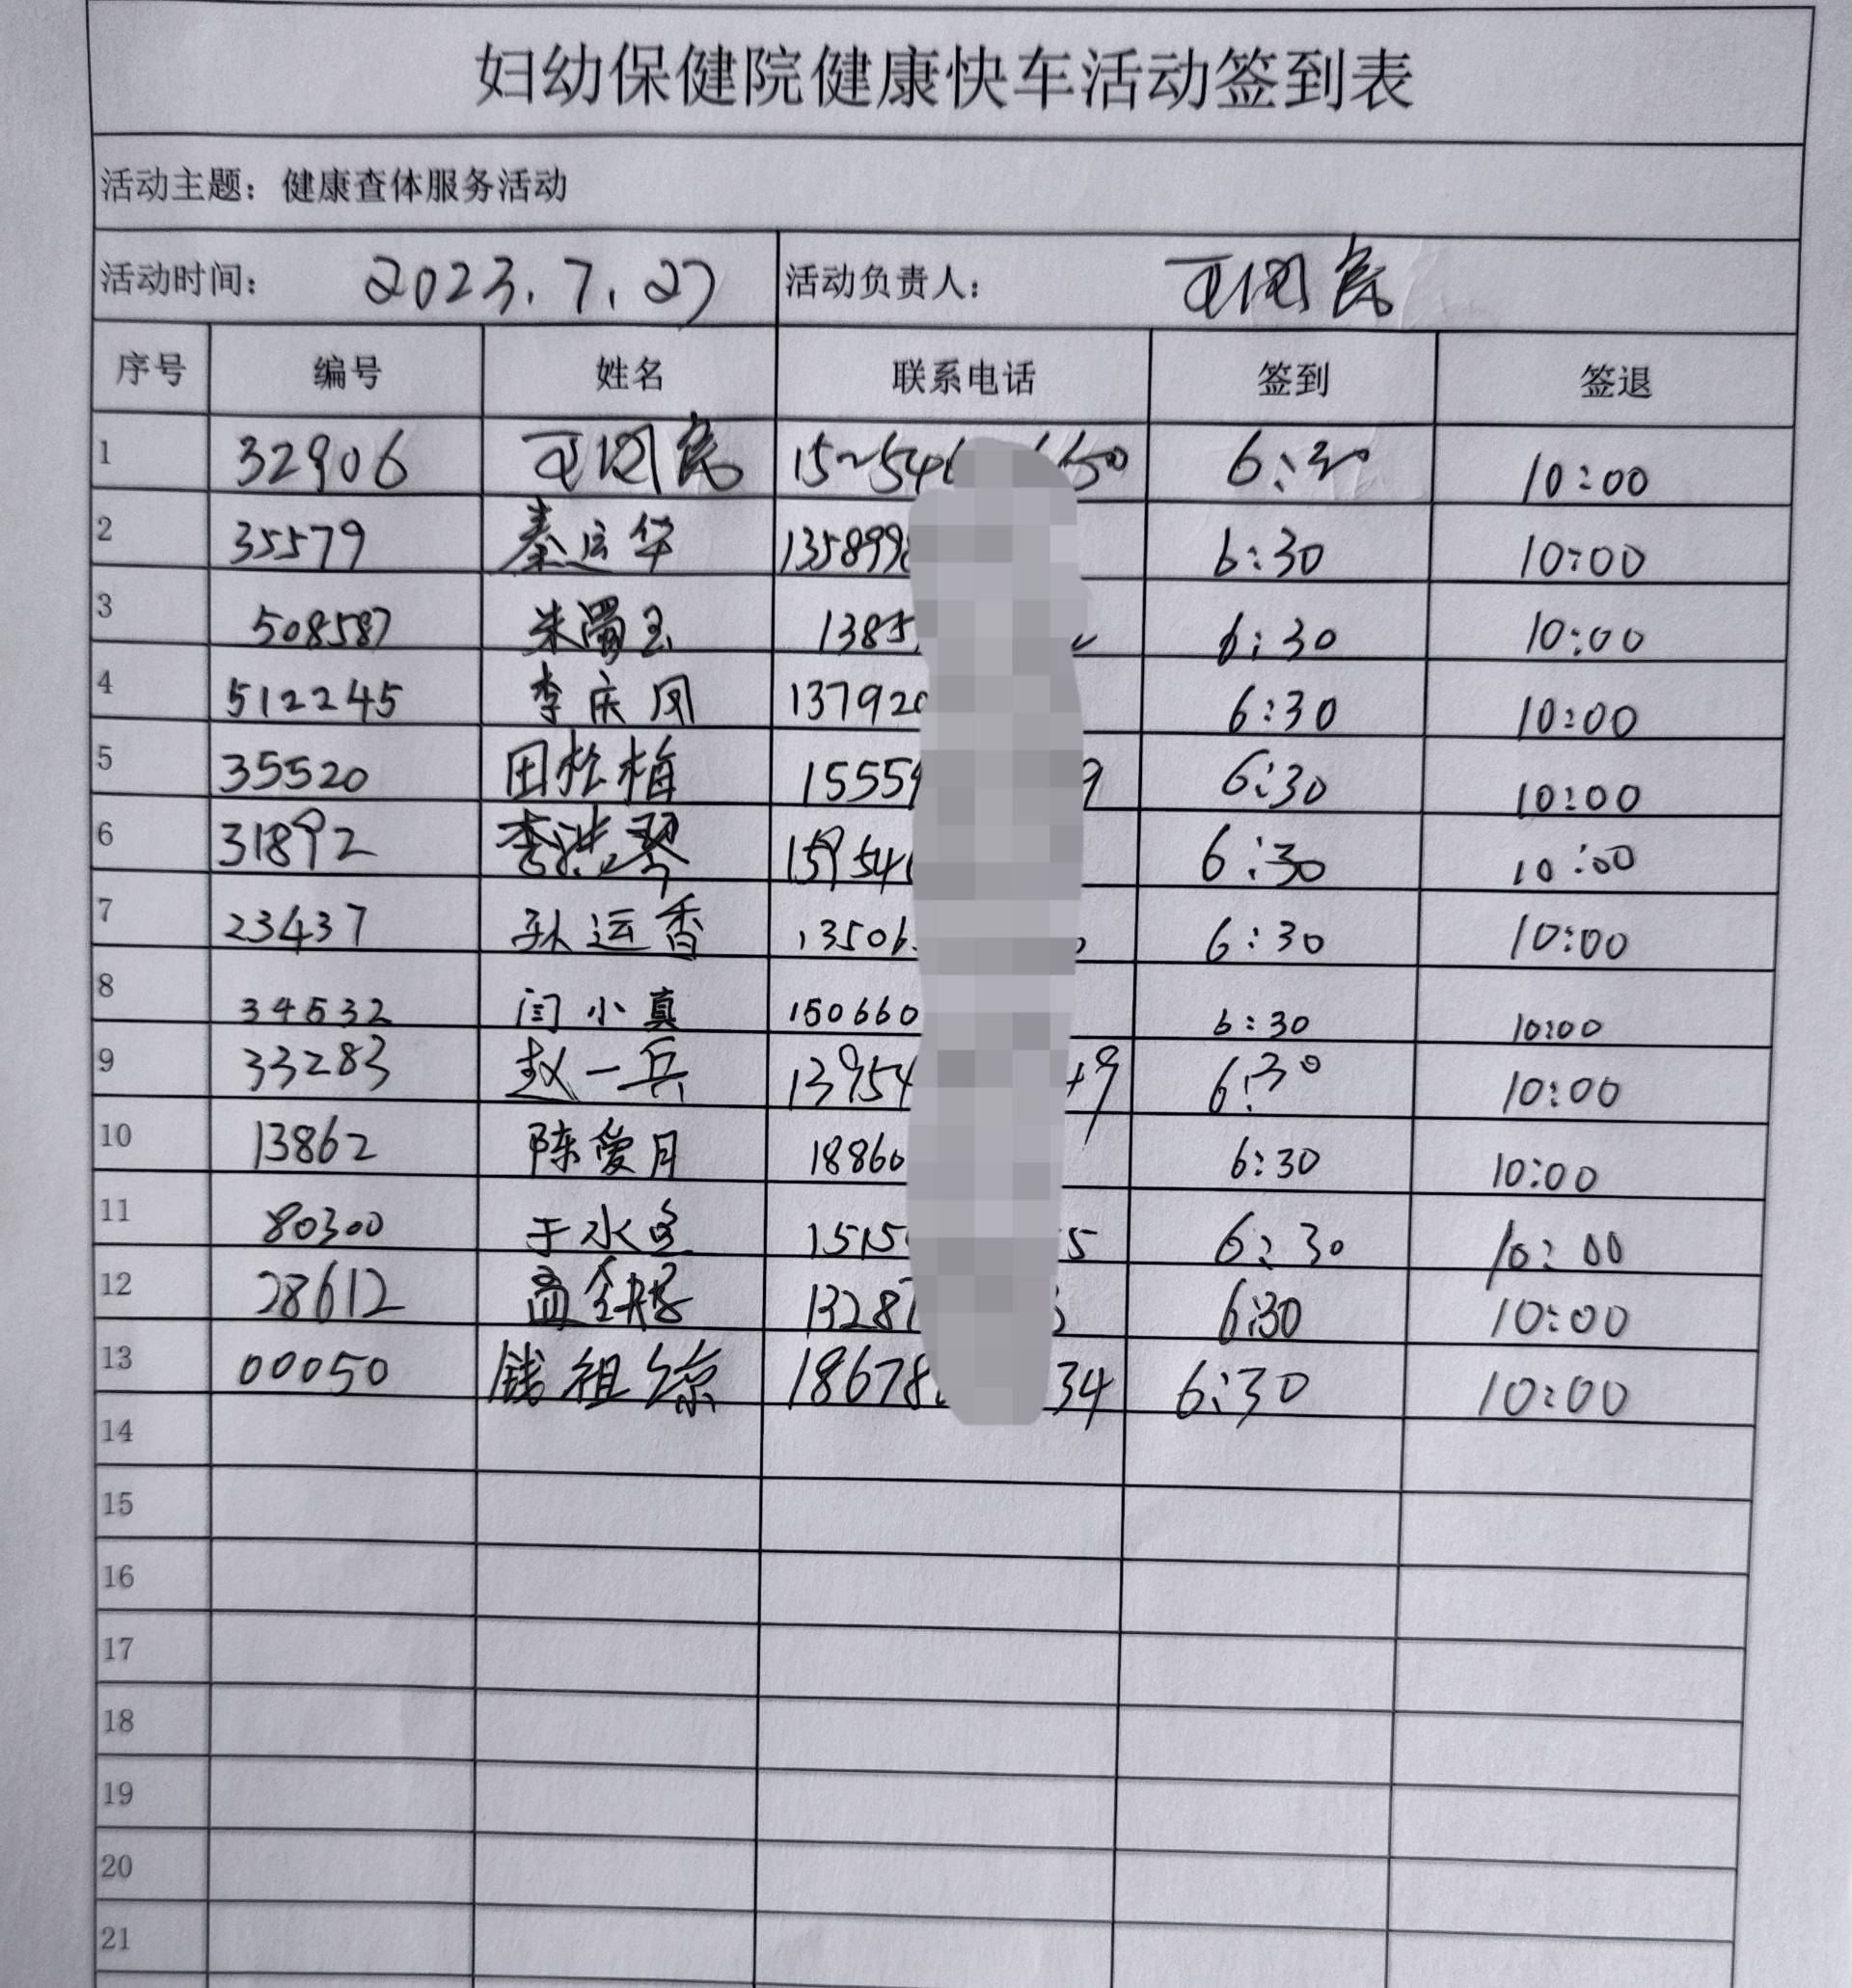 妇幼保健院健康快车活动签到表
活动主题：健康查体服务活动
活动时间： 2023.7.27 活动负责人：
序号 编号 姓名 联系电话 签到 签退
1 32906 6:30 10:00
2 35579 秦运华 135899 6:30 10:00
3 508587 1385 6:30 10:00
4 512245 李庆凤 137920 6:30 10:00
5 35520 田松梅 1555 9 6:30 10:00
6 31892 李洪琴 15954 6:30 10:00
7 23437 孙运香 13506 6:30 10:00
8 34532 闫小真 150660 6:30 10:00
9 33283 赵一兵 13954 49 6:30 10:00
10 13862 陈爱月 18860 6:30 10:00
11 80300 于水 1515 5 6:30 10:00
12 28612 孟 1328 6:30 10:00
13 00050 钱祖琼 18678 34 6:30 10:00
14
15
16
17
18
19
20
21